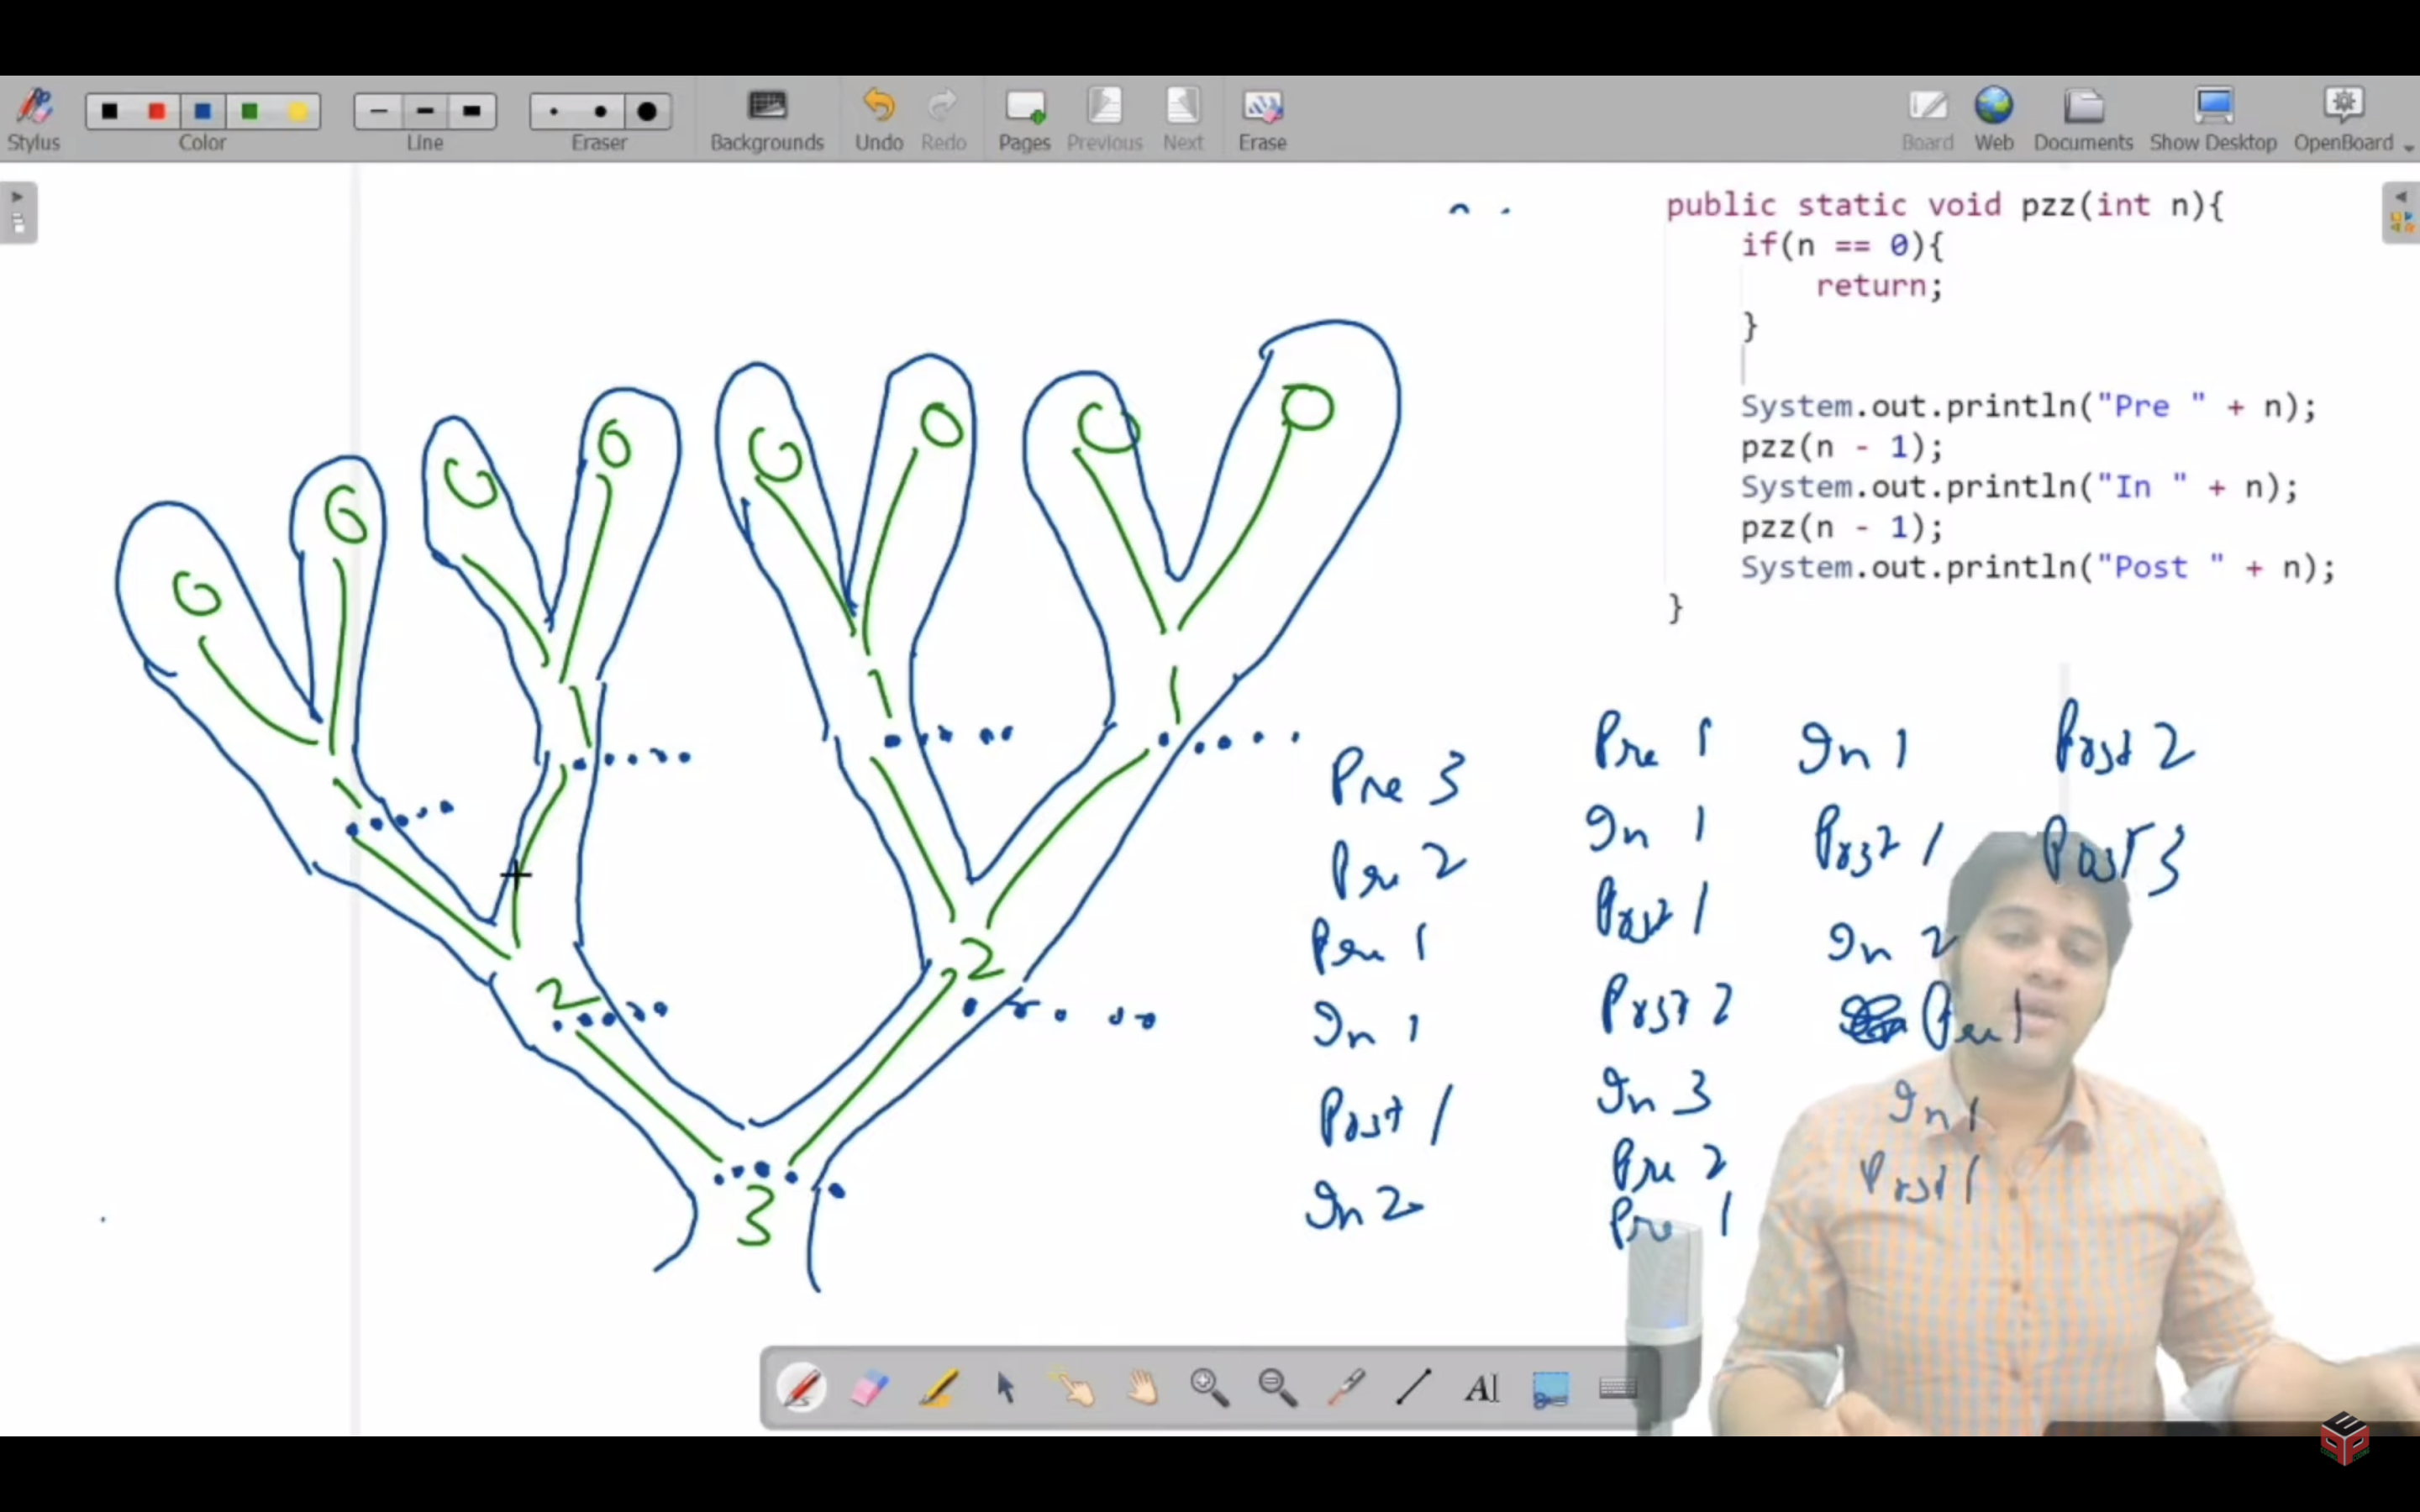 Stylus
Color
Line
Eraser
Backgrounds
Undo
Redo
Pages
Previous
Next
Erase
Board
Web
Documents
Show Desktop
OpenBoard
public static void pzz(int n){
if(n == 0){
return;
}
System.out.println("Pre " + n);
pzz(n - 1);
System.out.println("In " + n);
pzz(n - 1);
System.out.println("Post " + n);
}
0 0 0 0 0 0 0 0
1 1 1 1
2 2
3
Pre 3
Pre 2
Pre 1
In 1
Post 1
In 2
Pre 1
In 1
Post 1
Post 2
In 3
Pre 2
Pre 1
In 1
Post 1
In 2
Pre 1
In 1
Post 1
Post 2
Post 3
AI